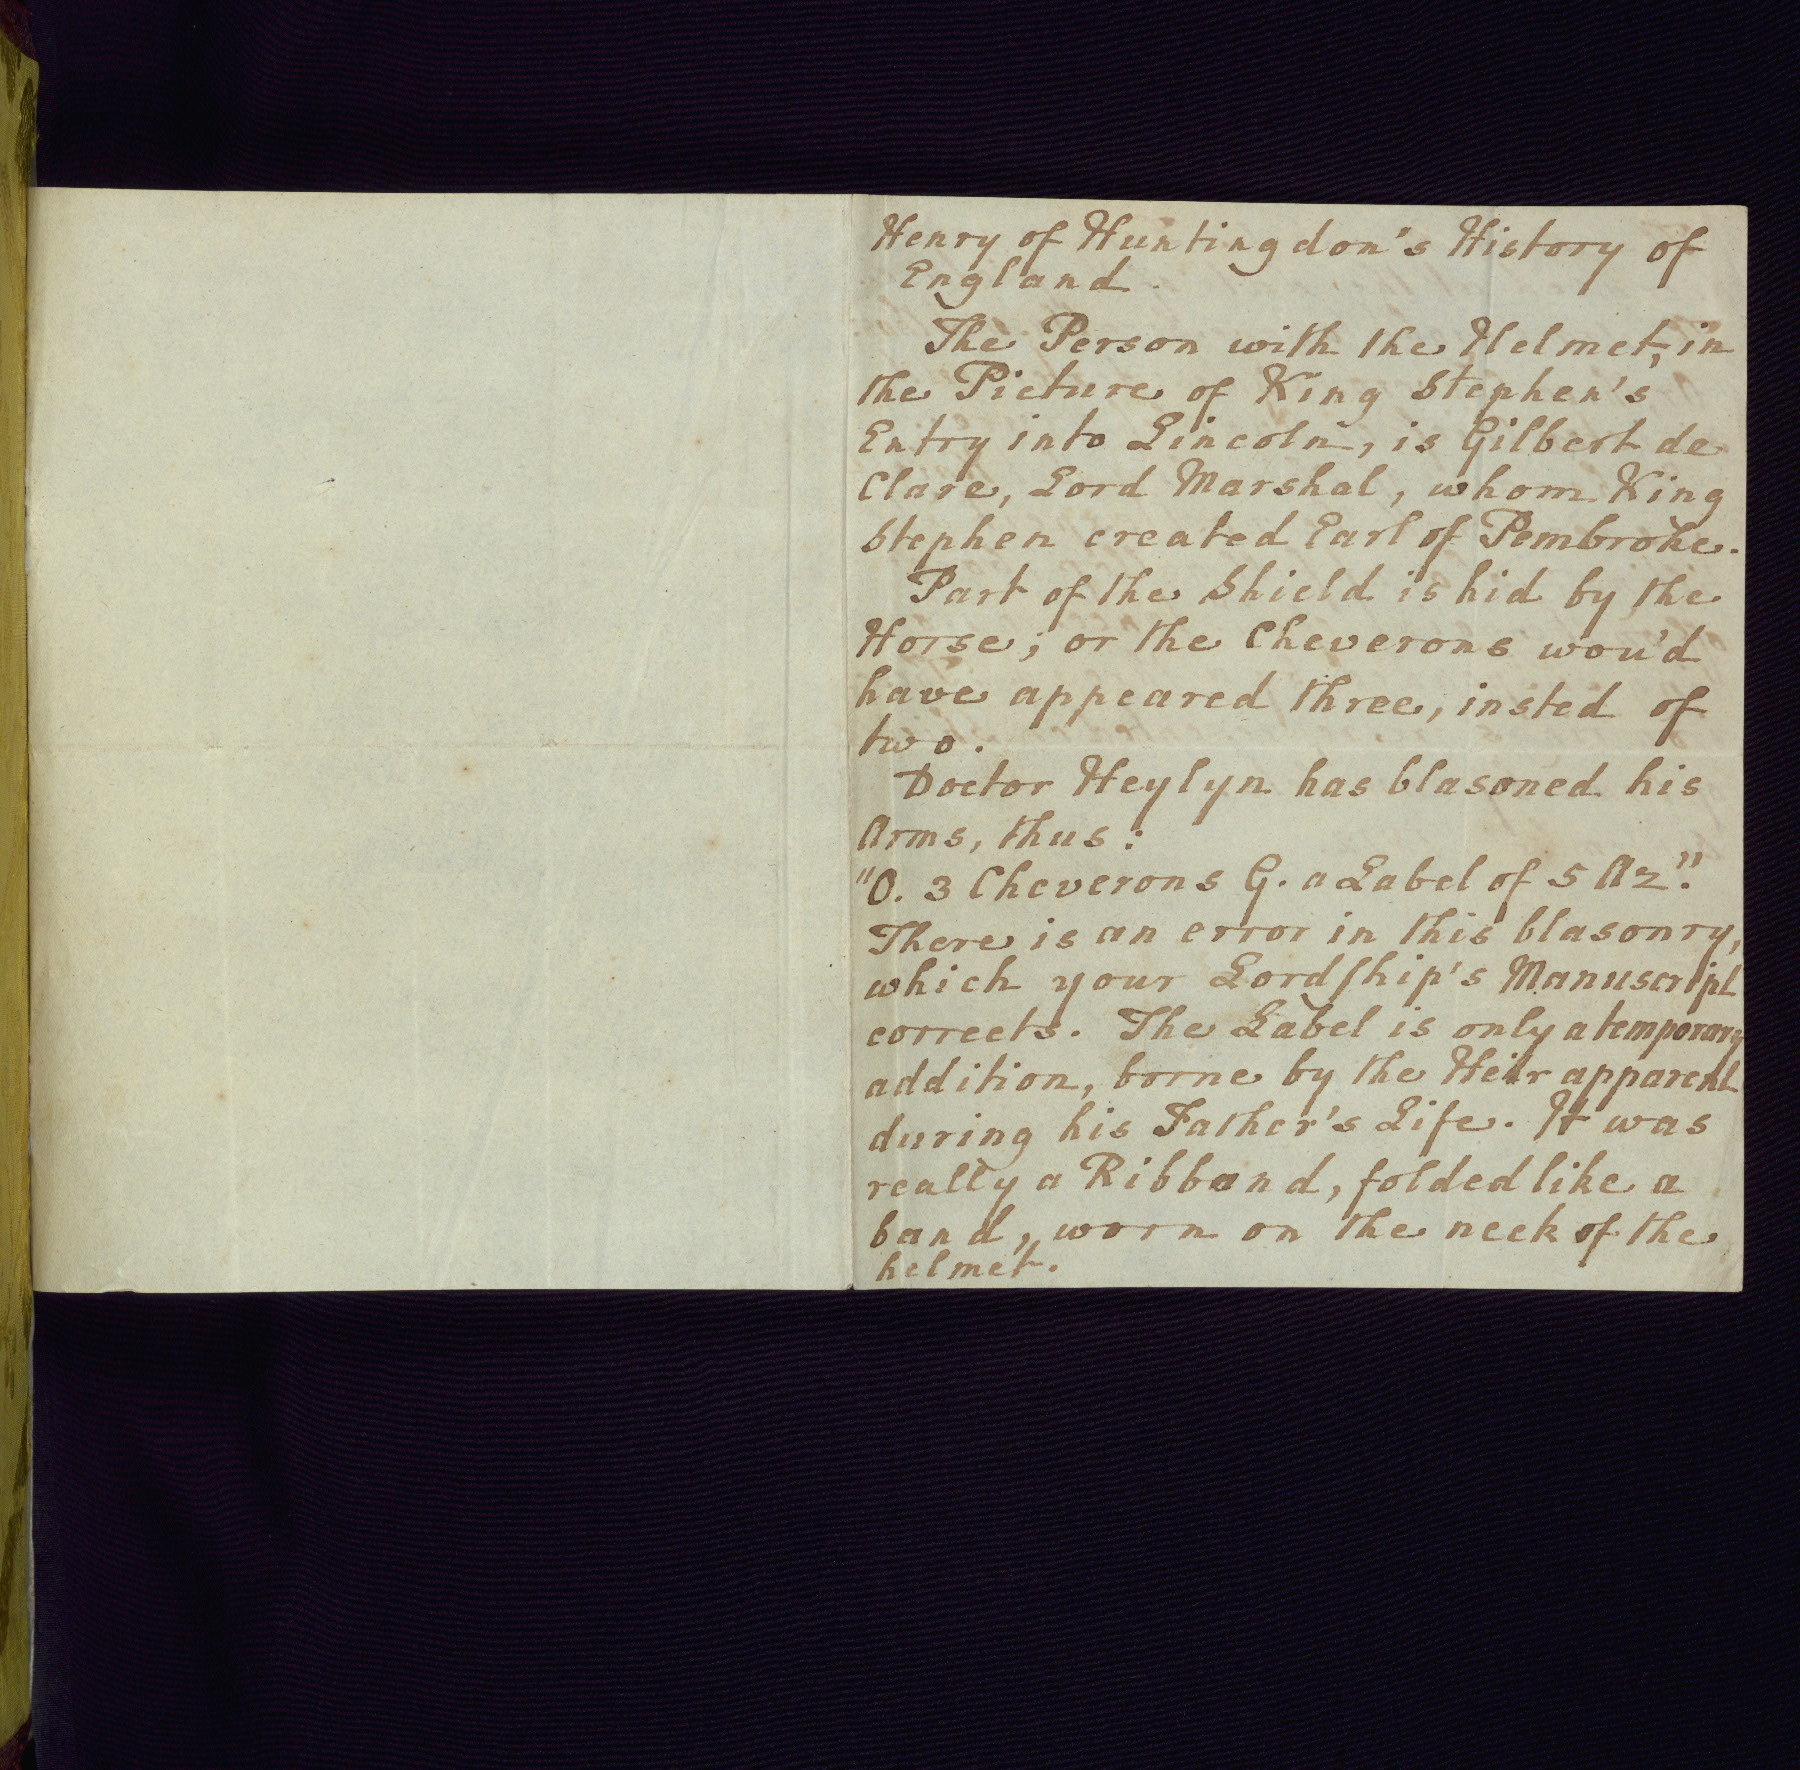 Henry of Huntingdon's History of
England.
The Person with the Helmet, in
the Picture of King Stephen's
Entry into Lincoln, is Gilbert de
Clare, Lord Marshal, whom King
Stephen created Earl of Pembroke.
Part of the Shield is hid by the
Horse; or the Cheverons wou'd
have appeared three, insted of
two.
Doctor Heylyn has blasoned his
Arms, thus:
"O. 3 Cheverons G. a Label of 5 Az".
There is an error in this blasonry,
which your Lordſhip's Manuscript
corrects. The Label is only a temporary
addition, borne by the Heir apparent
during his Father's Life. It was
really a Ribband, folded like a
band, worn on the neck of the
helmet.